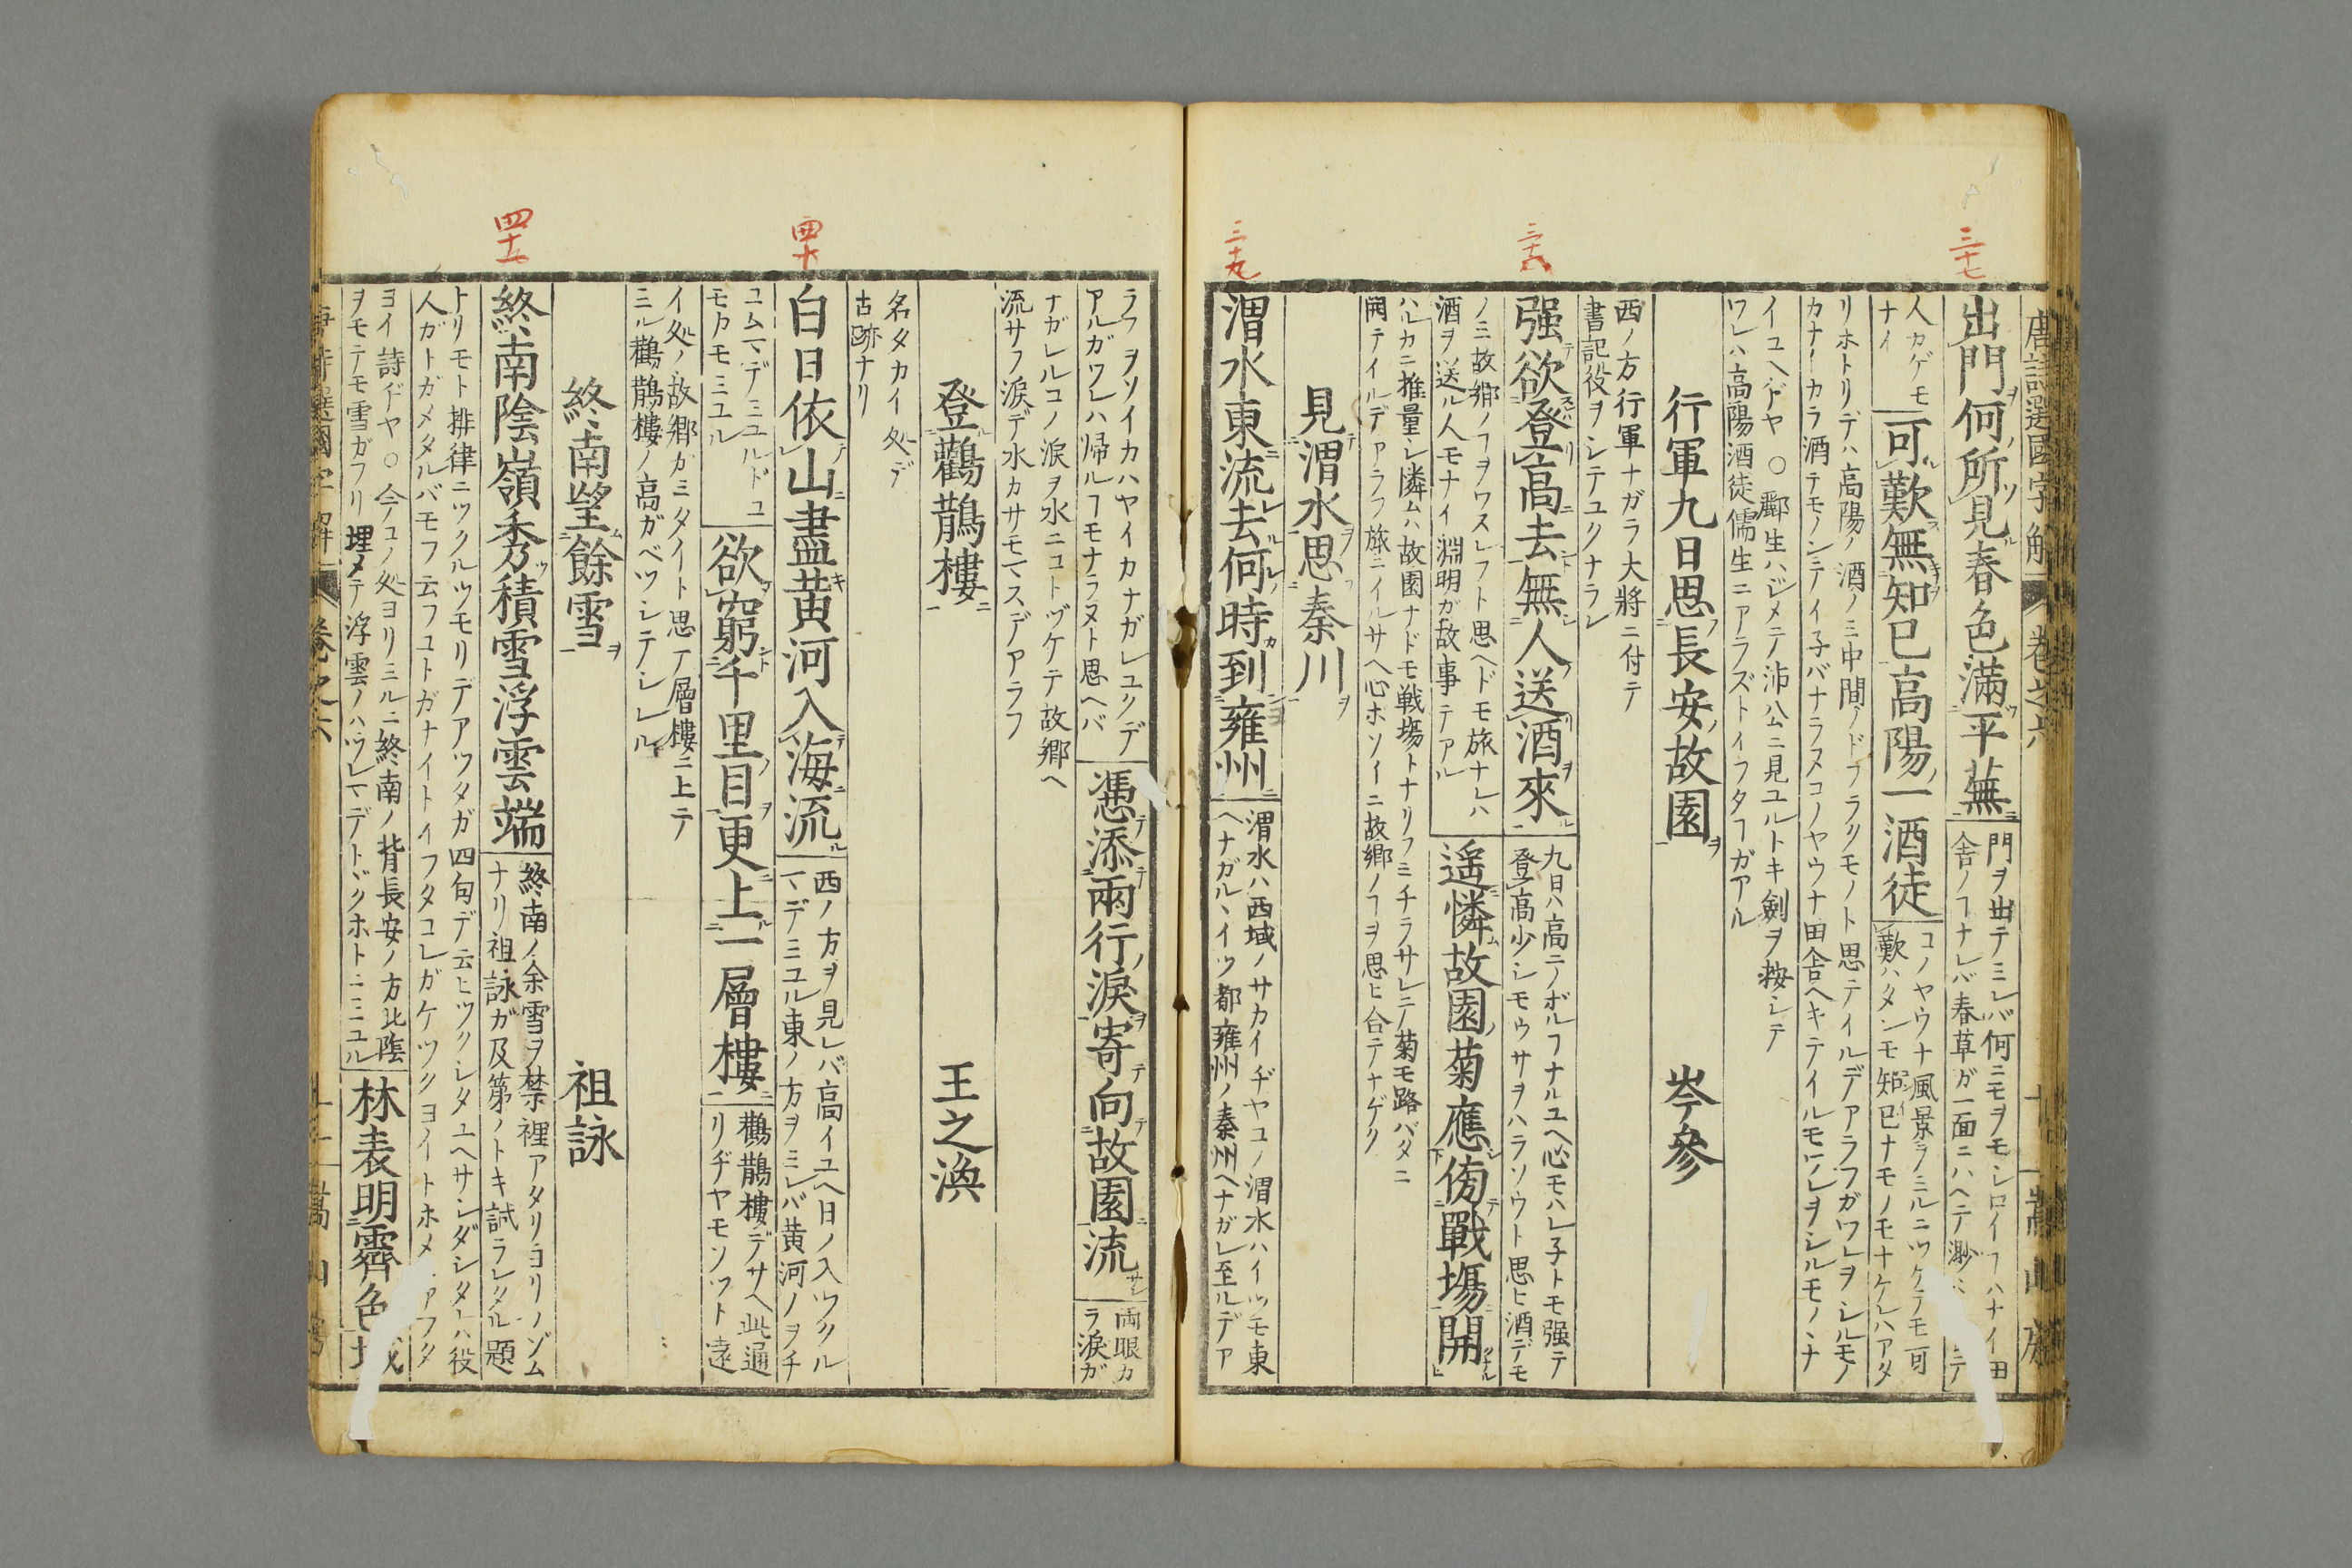 三十七
三十八
三十九
唐詩選國字解
卷之六
嵩山房
出門何所見春色滿平蕪
門ヲ出テミレバ何ニモヲモシロイフハナイ田
舎ノフナレバ春草ガ一面ニハヘテ渺
人カゲモ
ナイ
可歎無知已高陽一酒徒
コノヤウナ風景ヲミルニツケテモ可
歎ハタンモ知已ナモノモナケレハアタ
リホトリデハ高陽ノ酒ノミ中間ノドフラクモノト思テイルデアラフガワレヲシルモノ
カナイカラ酒テモノンテイ子バナラヌコノヤウナ田舎ヘキテイルモワレヲシルモノヽナ
イユヘヂヤ○酈生ハジメテ沛公ニ見ユルトキ劍ヲ按シテ
ワレハ高陽酒徒儒生ニアラズトイフタフガアル
行軍九日思長安故園
岑參
西ノ方行軍ナガラ大將ニ付テ
書記役ヲシテユクナラン
强欲登高去無人送酒來
九日ハ高ニノボルフナルユヘ心モハレ子トモ强テ
登高少シモウサヲハラソウト思ヒ酒デモ
ノミ故鄉ノフヲワスレフト思ヘドモ旅ナレハ
酒ヲ送ル人モナイ淵明ガ故事テアル
遥憐故園菊應傍戰塲開
ハルカニ推量シ憐ムハ故園ナドモ戰塲トナリフミチラサレテ菊モ路バタニ
開テイルデアラフ旅ニイルサヘ心ホソイニ故鄉ノフヲ思ヒ合テナゲク
見渭水思秦川
渭水東流去何時到雍州
渭水ハ西域ノサカイヂヤコノ渭水ハイツモ東
ヘナガルヽイツ都雍州ノ秦州ヘナガレ至ルデア
四十
四十一
ラフヲソイカハヤイカナガレユクデ
アルガワレハ帰ルフモナラヌト思ヘバ
憑添兩行淚寄向故園流
両眼カ
ラ淚ガ
ナガレルコノ淚ヲ水ニコトヅケテ故鄉ヘ
流サフ淚デ水カサモマスデアラフ
登鸛鵲樓
王之渙
名タカイ処デ
古跡ナリ
白日依山盡黄河入海流
西ノ方ヲ見レバ高イユヘ日ノ入ツクル
マヽデミユル東ノ方ヲミレバ黄河ノヲチ
コムマデミユルドコ
モカモミユル
欲窮千里目更上一層樓
鸛鵲樓デサヘ此通
リヂヤモソツト遠
イ処ノ故鄉ガミタイト思テ層樓ニ上テ
ミル鸛鵲樓ノ高ガベツシテシレル
終南望餘雪
祖詠
終南陰嶺秀積雪浮雲端
終南ノ余雪ヲ禁裡アタリヨリノゾム
ナリ祖詠ガ及第ノトキ試ラレタル題
トリモト排律ニツクルツモリデアツタガ四句デ云ヒツクシタユヘサシダシタレハ役
人ガトガメタルバモフ云フコトガナイトイフタコレガケツクヨイトホメ アフタ
ヨイ詩ヂヤ○今コノ処ヨリミルニ終南ノ背長安ノ方北陰
ヲモテモ雪ガフリ埋メテ浮雲ノハヅレマデトヾクホトニミユル
林表明霽色城
卷之六